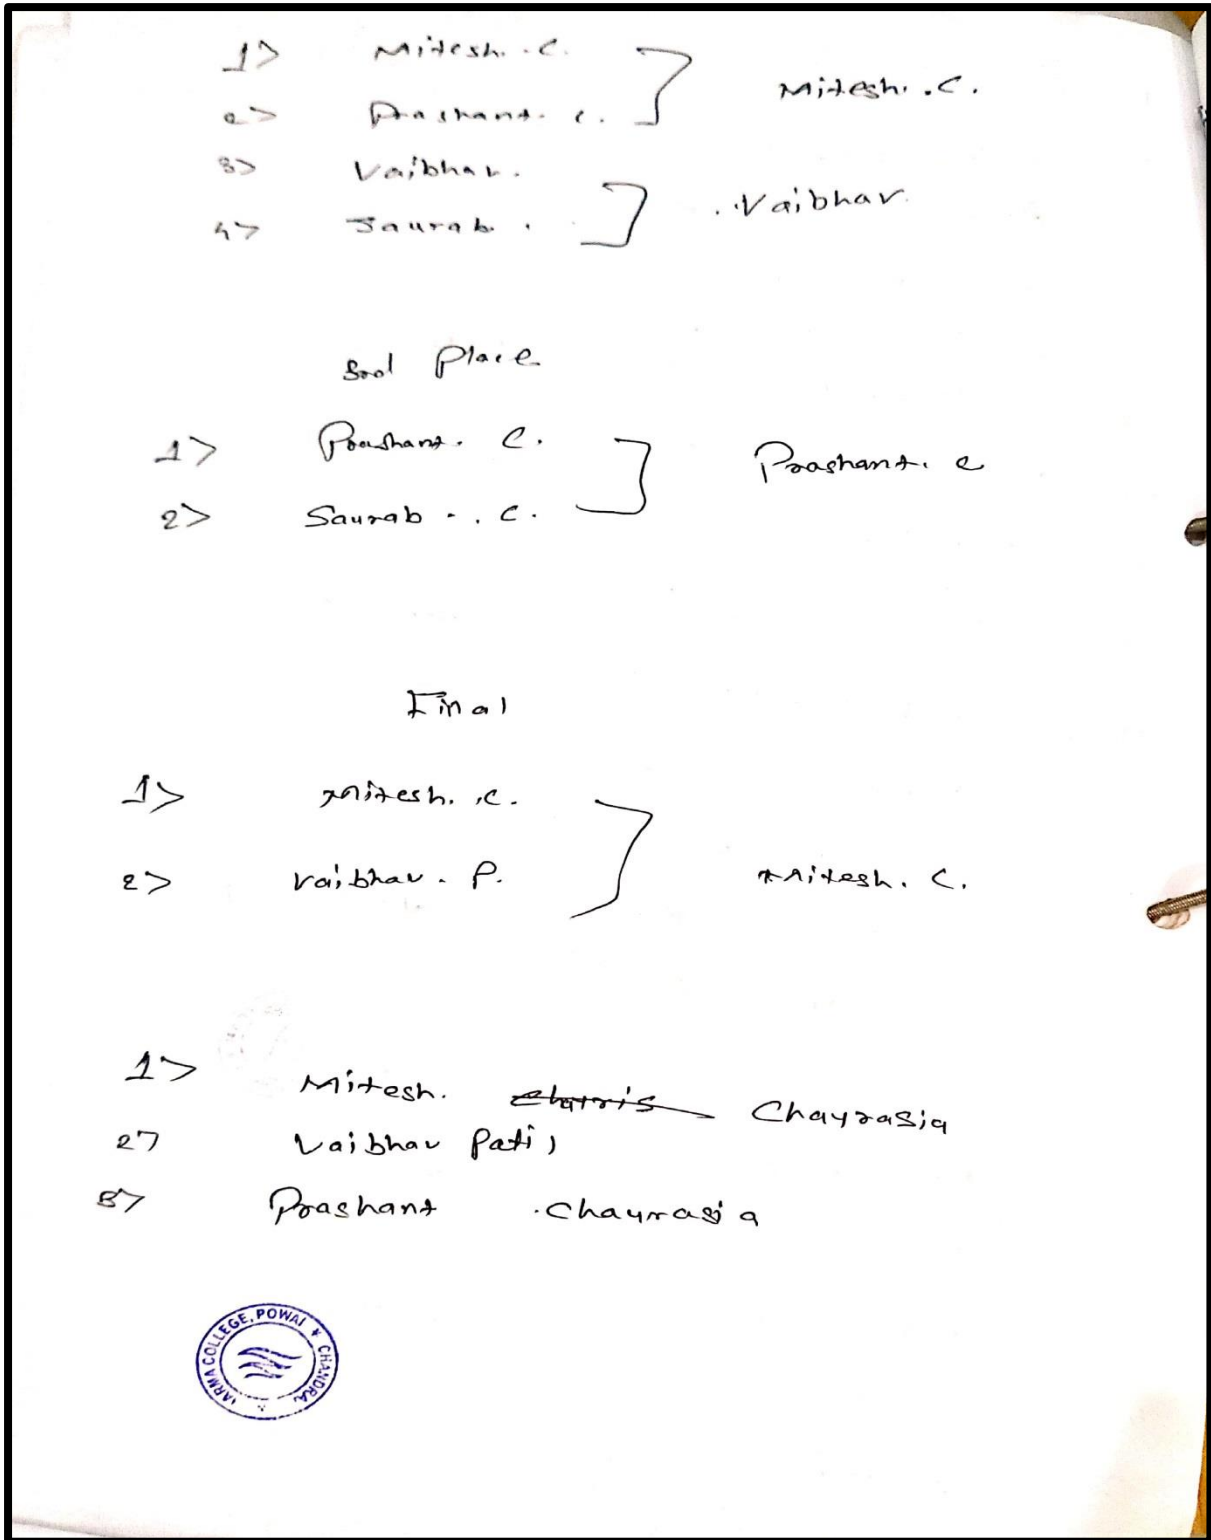 1> Mitesh. .C.
2> Prashant. C. Mitesh. .C.
3> Vaibhav.
4> Saurab. . Vaibhav
3rd Place
1> Prashant. C.
2> Saurab - . C. Prashant. C
Final
1> Mitesh. .C.
2> Vaibhav. P. Mitesh. C.
1> Mitesh. Chaurasia
2> Vaibhav Patil
3> Prashant .Chaurasia
VARMA COLLEGE, POWAI * CHANDRA